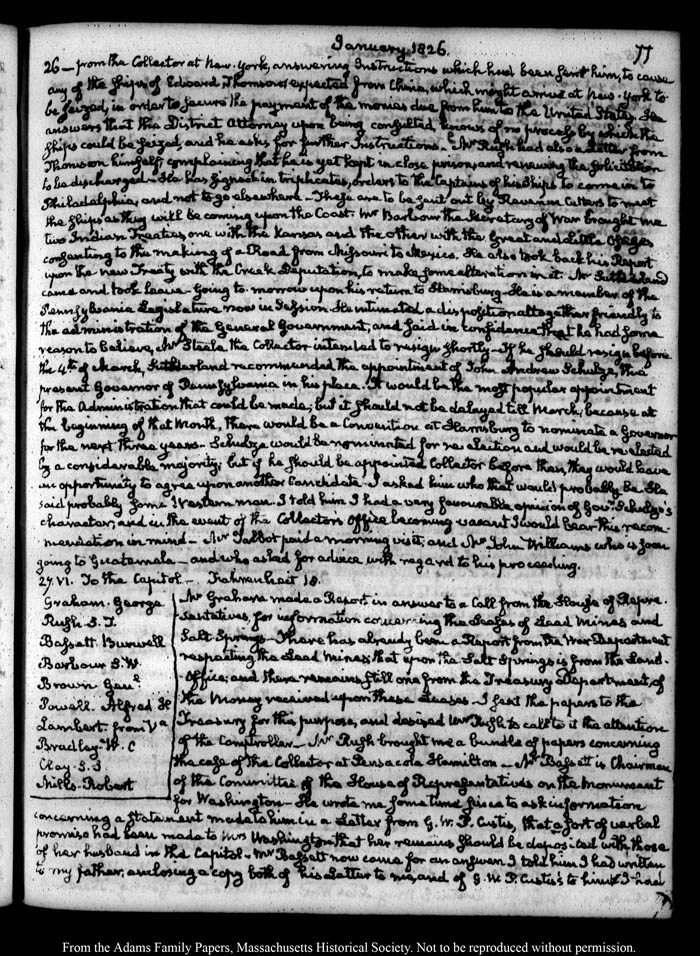 January 1826.
77
26 — from the Collector at New-York, answering Instructions which had been sent him, to cause
any of the ships of Edward Thomson, expected from China, which might arrive at New-York to
be seized, in order to secure the payment of the monies due from him to the United States. He
answers that the District Attorney upon being consulted, knows of no process by which the
ships could be seized, and he asks for further Instructions. Mr Rush had also a Letter from
Thomson himself, complaining that he is yet kept in close prison, and renewing the solicitation
to be discharged. He has signed in triplicates, orders to the Captains of his Ships to come in to
Philadelphia, and not to go elsewhere. These are to be sent out by Revenue Cutters to meet
the ships as they will be coming upon the Coast. Mr Barbour the Secretary of War brought me
two Indian Treaties, one with the Kansas and the other with the Great and Little Osages
consenting to the making of a Road from Missouri to Mexico. He also took back his Report
upon the new Treaty with the Creek Deputation, to make some alteration in it. Mr Sutherland
came and took leave. Going to-morrow upon his return to Harrisburg. He is a member of the
Pennsylvania Legislature now in Session. He intimated a disposition altogether friendly to
the administration of the General Government, and said in confidence that he had some
reason to believe, Mr Steele the Collector intended to resign shortly. If he should resign before
the 4th of March, Sutherland recommended the appointment of John Andrew Schulze, the
present Governor of Pennsylvania in his place. It would be the most popular appointment
for the Administration that could be made, but it should not be delayed till March, because at
the beginning of that Month, there would be a Convention at Harrisburg to nominate a Governor
for the next three years. Schulze would be nominated for re-election and would be re-elected
by a considerable majority; but if he should be appointed Collector before then, they would have
an opportunity to agree upon another Candidate. I asked him who that would probably be. He
said probably some Western man. I told him I had a very favourable opinion of Govr Schulze's
character, and in the event of the Collectors Office becoming vacant I would bear this recom-
mendation in mind. Mr Talbot paid a morning visit; and Mr John Williams who is soon
going to Guatemala — and who asked for advice with regard to his proceeding.
27. VI. To the Capitol — Fahrenheit 18.
Graham. George
Rush S.T
Bassett Burwell
Barbour S.W.
Brown Genl
Powell. Alfred H
Lambert. from Va
Bradley. W. C
Clay. S.S
Mills. Robert
Mr Graham made a Report in answer to a Call from the House of Repre-
sentatives, for information concerning the Leases of Lead Mines and
Salt Springs. There has already been a Report from the War Department
respecting the Lead Mines; that upon the Salt Springs is from the Land-
Office; and there remains still one from the Treasury Department, of
the Money received upon these Leases. I sent the papers to the
Treasury for this purpose, and desired Mr Rush to call to it the attention
of the Comptroller. Mr Rush brought me a bundle of papers concerning
the case of the Collector at Pensacola Hamilton. Mr Bassett is Chairman
of the Committee of the House of Representatives on the Monument
for Washington. He wrote me some time since to ask information
concerning a statement made to him in a Letter from G. W. P. Custis, that a sort of verbal
promise had been made to Mrs Washington that her remains should be deposited with those
of her husband in the Capitol. Mr Bassett now came for an answer. I told him I had written
to my father, enclosing a copy both of his Letter to me, and of G. W. P. Custis's to him. I had
From the Adams Family Papers, Massachusetts Historical Society. Not to be reproduced without permission.